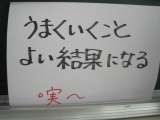 うまくいくこと
よい結果になる
°実〜